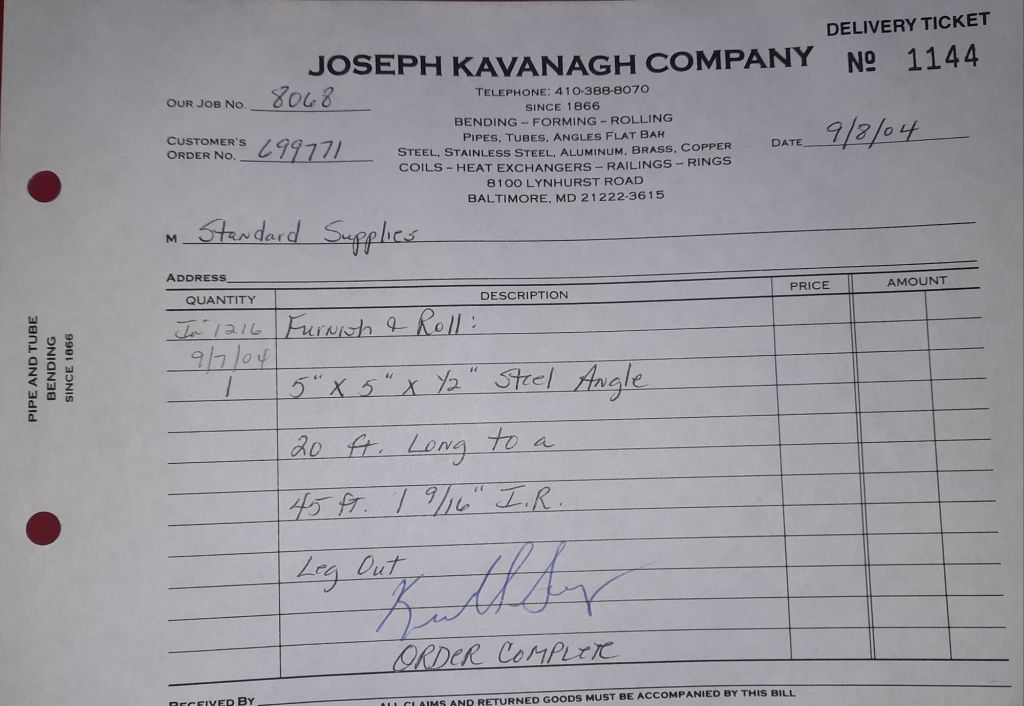 DELIVERY TICKET
JOSEPH KAVANAGH COMPANY
Nº 1144
TELEPHONE: 410-388-8070
SINCE 1866
BENDING – FORMING – ROLLING
PIPES, TUBES, ANGLES FLAT BAR
STEEL, STAINLESS STEEL, ALUMINUM, BRASS, COPPER
COILS – HEAT EXCHANGERS – RAILINGS – RINGS
8100 LYNHURST ROAD
BALTIMORE, MD 21222-3615
OUR JOB NO. 8068
CUSTOMER'S
ORDER NO. 699771
DATE 9/8/04
M Standard Supplies
ADDRESS
QUANTITY DESCRIPTION PRICE AMOUNT
In 1216 Furnish & Roll:
9/7/04
1 5" X 5" X 1/2" Steel Angle
20 ft. Long to a
45 ft. 1 9/16" I.R.
Leg Out
ORDER COMPLETE
RECEIVED BY
ALL CLAIMS AND RETURNED GOODS MUST BE ACCOMPANIED BY THIS BILL
PIPE AND TUBE
BENDING
SINCE 1866